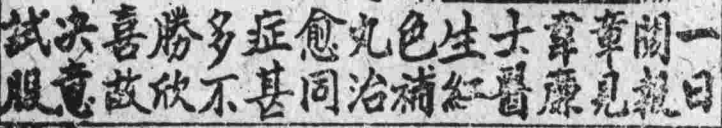 一日
閱報
章見
韋廉
士醫
生紅
色補
丸治
愈同
症甚
多不
勝欣
喜故
决意
試服